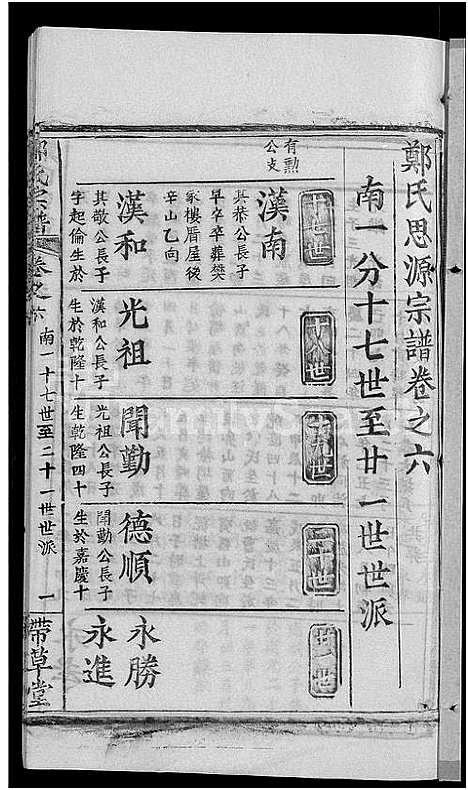 鄭氏思源宗譜卷之六
南一分十七世至廿一世世派
十七世
十八世
十九世
二十世
廿一世
有勲
公支
漢南
其恭公長子
早卒卒葬樊
家樓厝屋後
辛山乙向
漢和
其敬公長子
字起倫生於
光祖
漢和公長子
生於乾隆十
聞勤
光祖公長子
生乾隆四十
德順
聞勤公長子
生於嘉慶十
永勝
永進
鄭氏宗譜
卷之六
南一十七世至二十一世世派
一
帶草堂